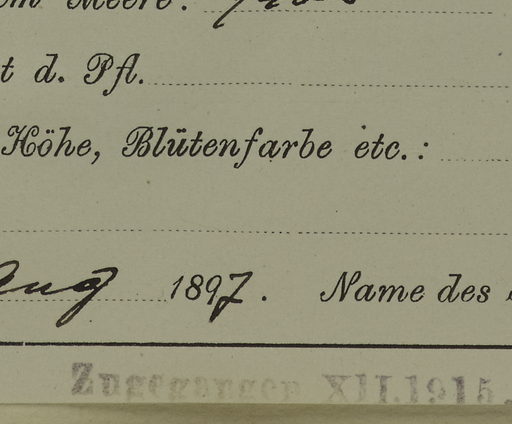 Meere:
t d. Pfl.
Höhe, Blütenfarbe etc.:
Aug 1897. Name des
Zugegangen XII.1915.